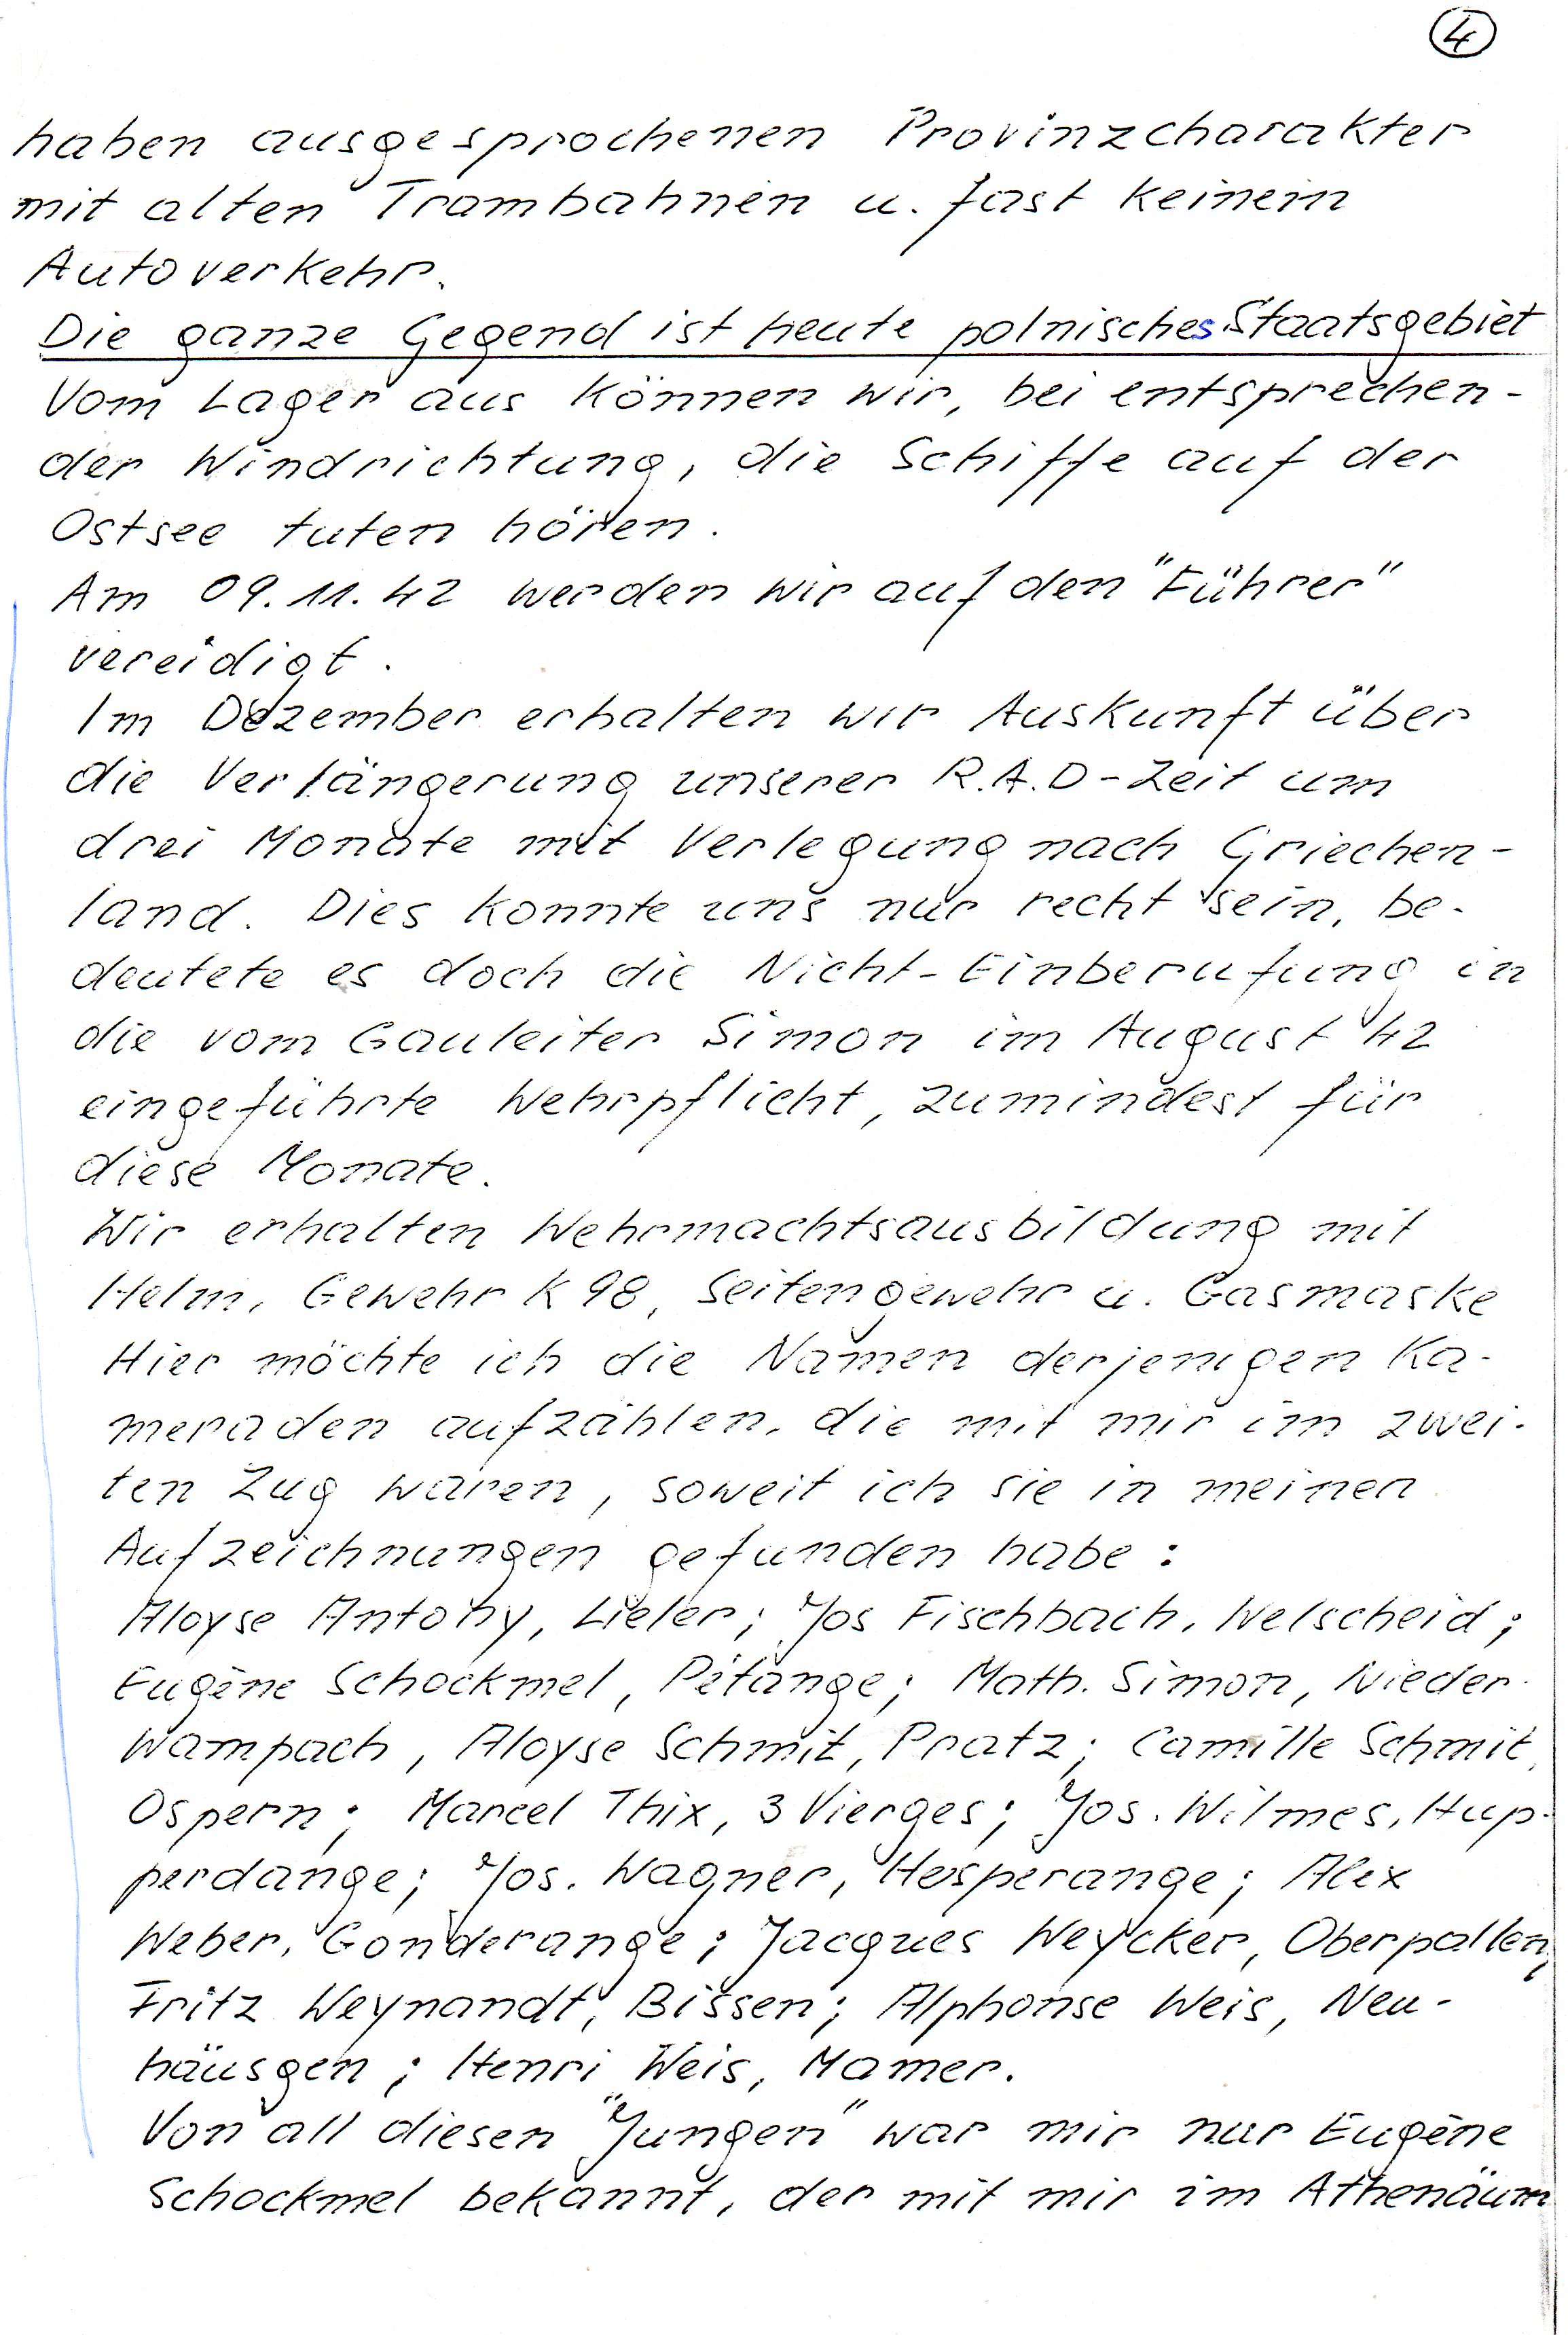 4
haben ausgesprochenen Provinzcharakter
mit alten Trambahnen u. fast keinem
Autoverkehr.
Die ganze Gegend ist heute polnisches Staatsgebiet
Vom Lager aus können wir, bei entsprechen-
der Windrichtung, die Schiffe auf der
Ostsee tuten hören.
Am 09.11.42 werden wir auf den "Führer"
vereidigt.
Im Dezember erhalten wir Auskunft über
die Verlängerung unserer R.A.D-Zeit um
drei Monate mit Verlegung nach Griechen-
land. Dies konnte uns nur recht sein, be-
deutete es doch die Nicht-Einberufung in
die vom Gauleiter Simon im August 42
eingeführte Wehrpflicht, zumindest für
diese Monate.
Wir erhalten Wehrmachtsausbildung mit
Helm, Gewehr K 98, Seitengewehr u. Gasmaske
Hier möchte ich die Namen derjenigen Ka-
meraden aufzählen, die mit mir im zwei-
ten Zug waren, soweit ich sie in meinen
Aufzeichnungen gefunden habe :
Aloyse Antony, Lieler; Jos Fischbach, Welscheid;
Eugène Schockmel, Pétange; Math. Simon, Nieder-
wampach, Aloyse Schmit, Pratz; Camille Schmit,
Ospern; Marcel Thix, 3 Vierges; Jos. Wilmes, Hup-
perdange; Jos. Wagner, Hesperange; Alex
Weber, Gonderange; Jacques Weycker, Oberpallen;
Fritz Weynandt, Bissen; Alphonse Weis, Neu-
häusgen; Henri Weis, Mamer.
Von all diesen "Jungen" war mir nur Eugène
Schockmel bekannt, der mit mir im Athenäum